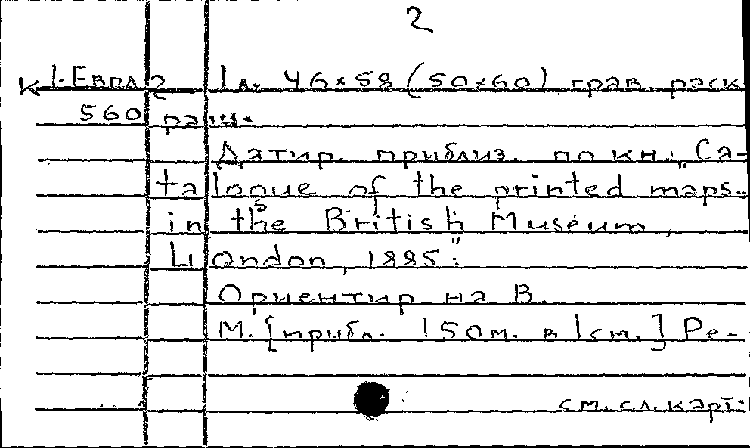 2
К 1-Евпл 2 1 л. 46×58 (50×60) грав. раск.
560 рам.
Датир. приблиз. по кн.: "Ca-
talogue of the printed maps..
in the British Museum,
London, 1885".
Ориентир на В.
М. [прибл. 150м. в 1см.] Ре-
см. сл. карт.